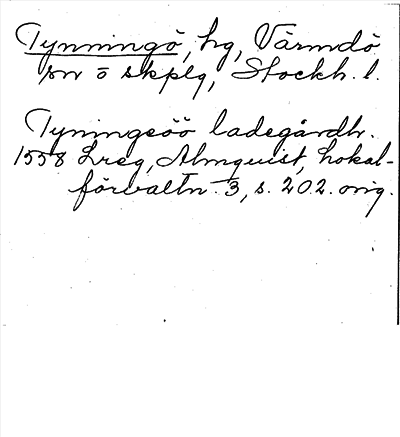 Tynningö, hg, Värmdö
sn o skplg, Stockh. l.
Tyningeöö ladegårdh.
1558 Lreg, Almquist, Lokal-
förvaltn. 3, s. 202. orig.